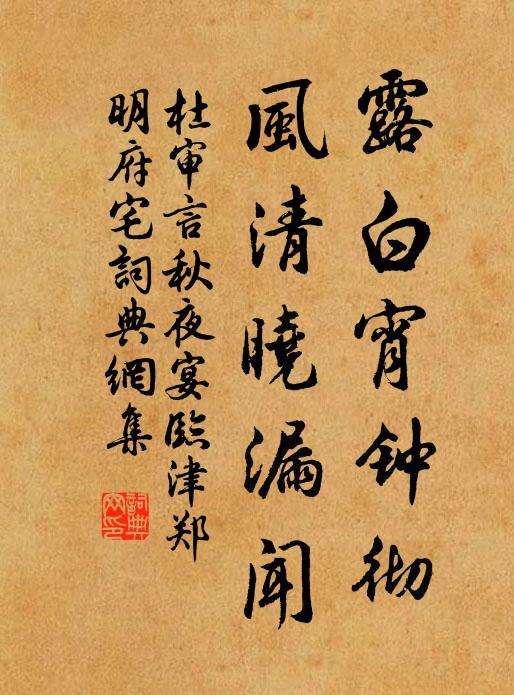 露白宵钟彻
風清曉漏聞
杜审言秋夜宴臨津郑
明府宅詞典網集
詞典網印